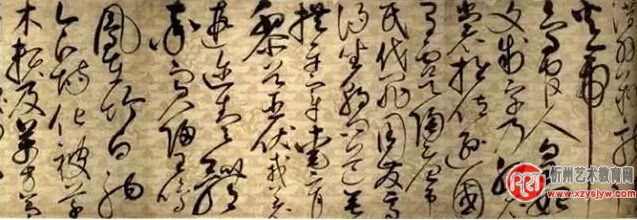 潛羽翔龍師
火帝
鳥官人皇始
制文字乃服衣
裳推位遜國
有虞陶唐弔
民伐罪周發商
湯坐朝問道垂
拱平章愛育
黎首臣伏戎羌
遐邇壹體
率賓歸王鳴
鳳在竹白駒
食場化被草
木賴及萬方蓋
忻州艺术教育网
www.xzysjyw.com